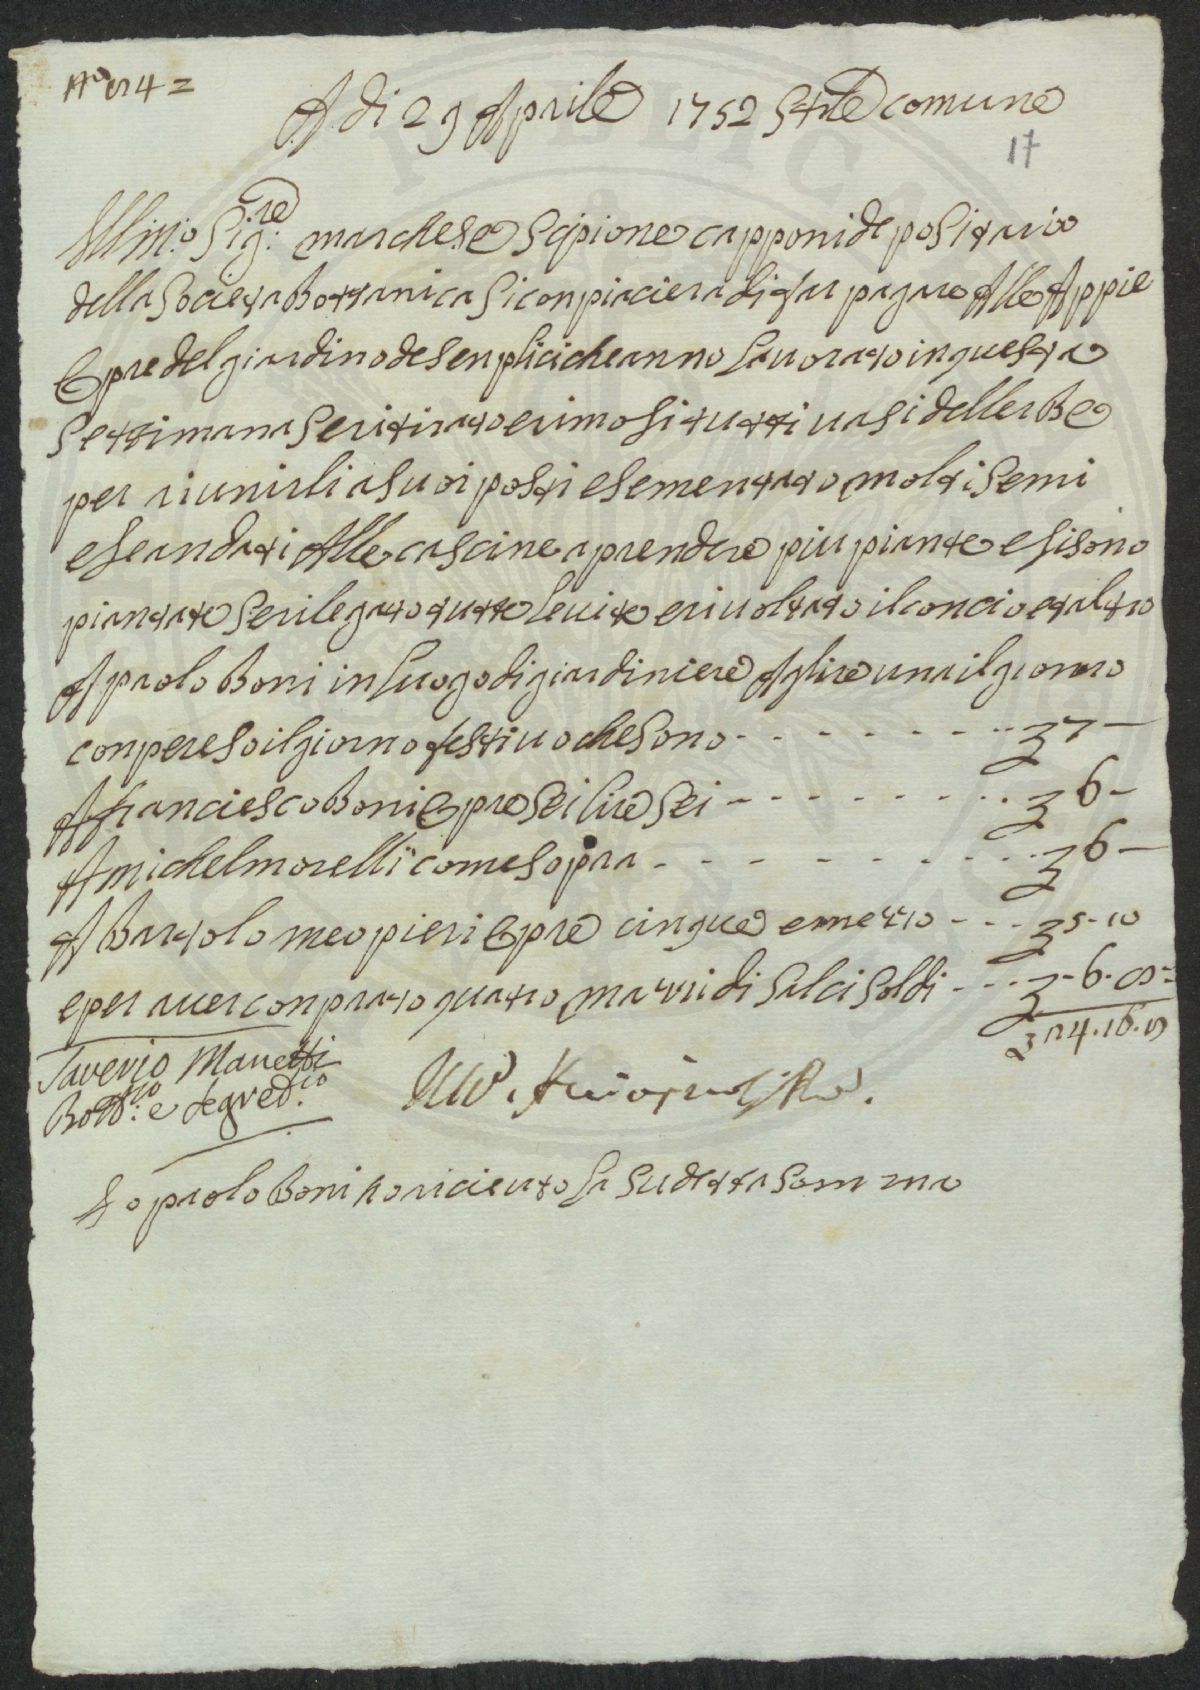 A di 29 Aprile 1752 Stile comune
17
Illm:o Sig:re marchese Scipione capponi depositario
della Societa Bottanica Si conpiaciera di far pagare Alle Appie
Opre del giardino de Senplici che anno Lauorato in questa
Settimana Se ritirato e rimosi tutti uasi dell erbe
per riunirli a suoi posti e sementato molti Semi
e Se andati Alle cascine a prendere piu piante e si sono
piantate Se rilegato tutte Le uite e riuoltato il concio et altro
A paolo Boni in Luogo di giardiniere A lire una il giorno
conpreso il giorno festiuo che Sono - - - - - - - - £ 7 -
A franciesco Boni Opre Sei lire Sei - - - - - - - - £ 6 -
A michel morelli come sopra - - - - - - - - £ 6 -
A Bartolomeo pieri Opre cinque e mezzo - - - £ 5 - 10
e per auer conprato quatro mazzi di Salci Soldi - - - £ - 6 . 8 =
Saverio Manetti
Bott:co e Segret:rio
Io paolo Boni ho riceuto La Sudetta Somma